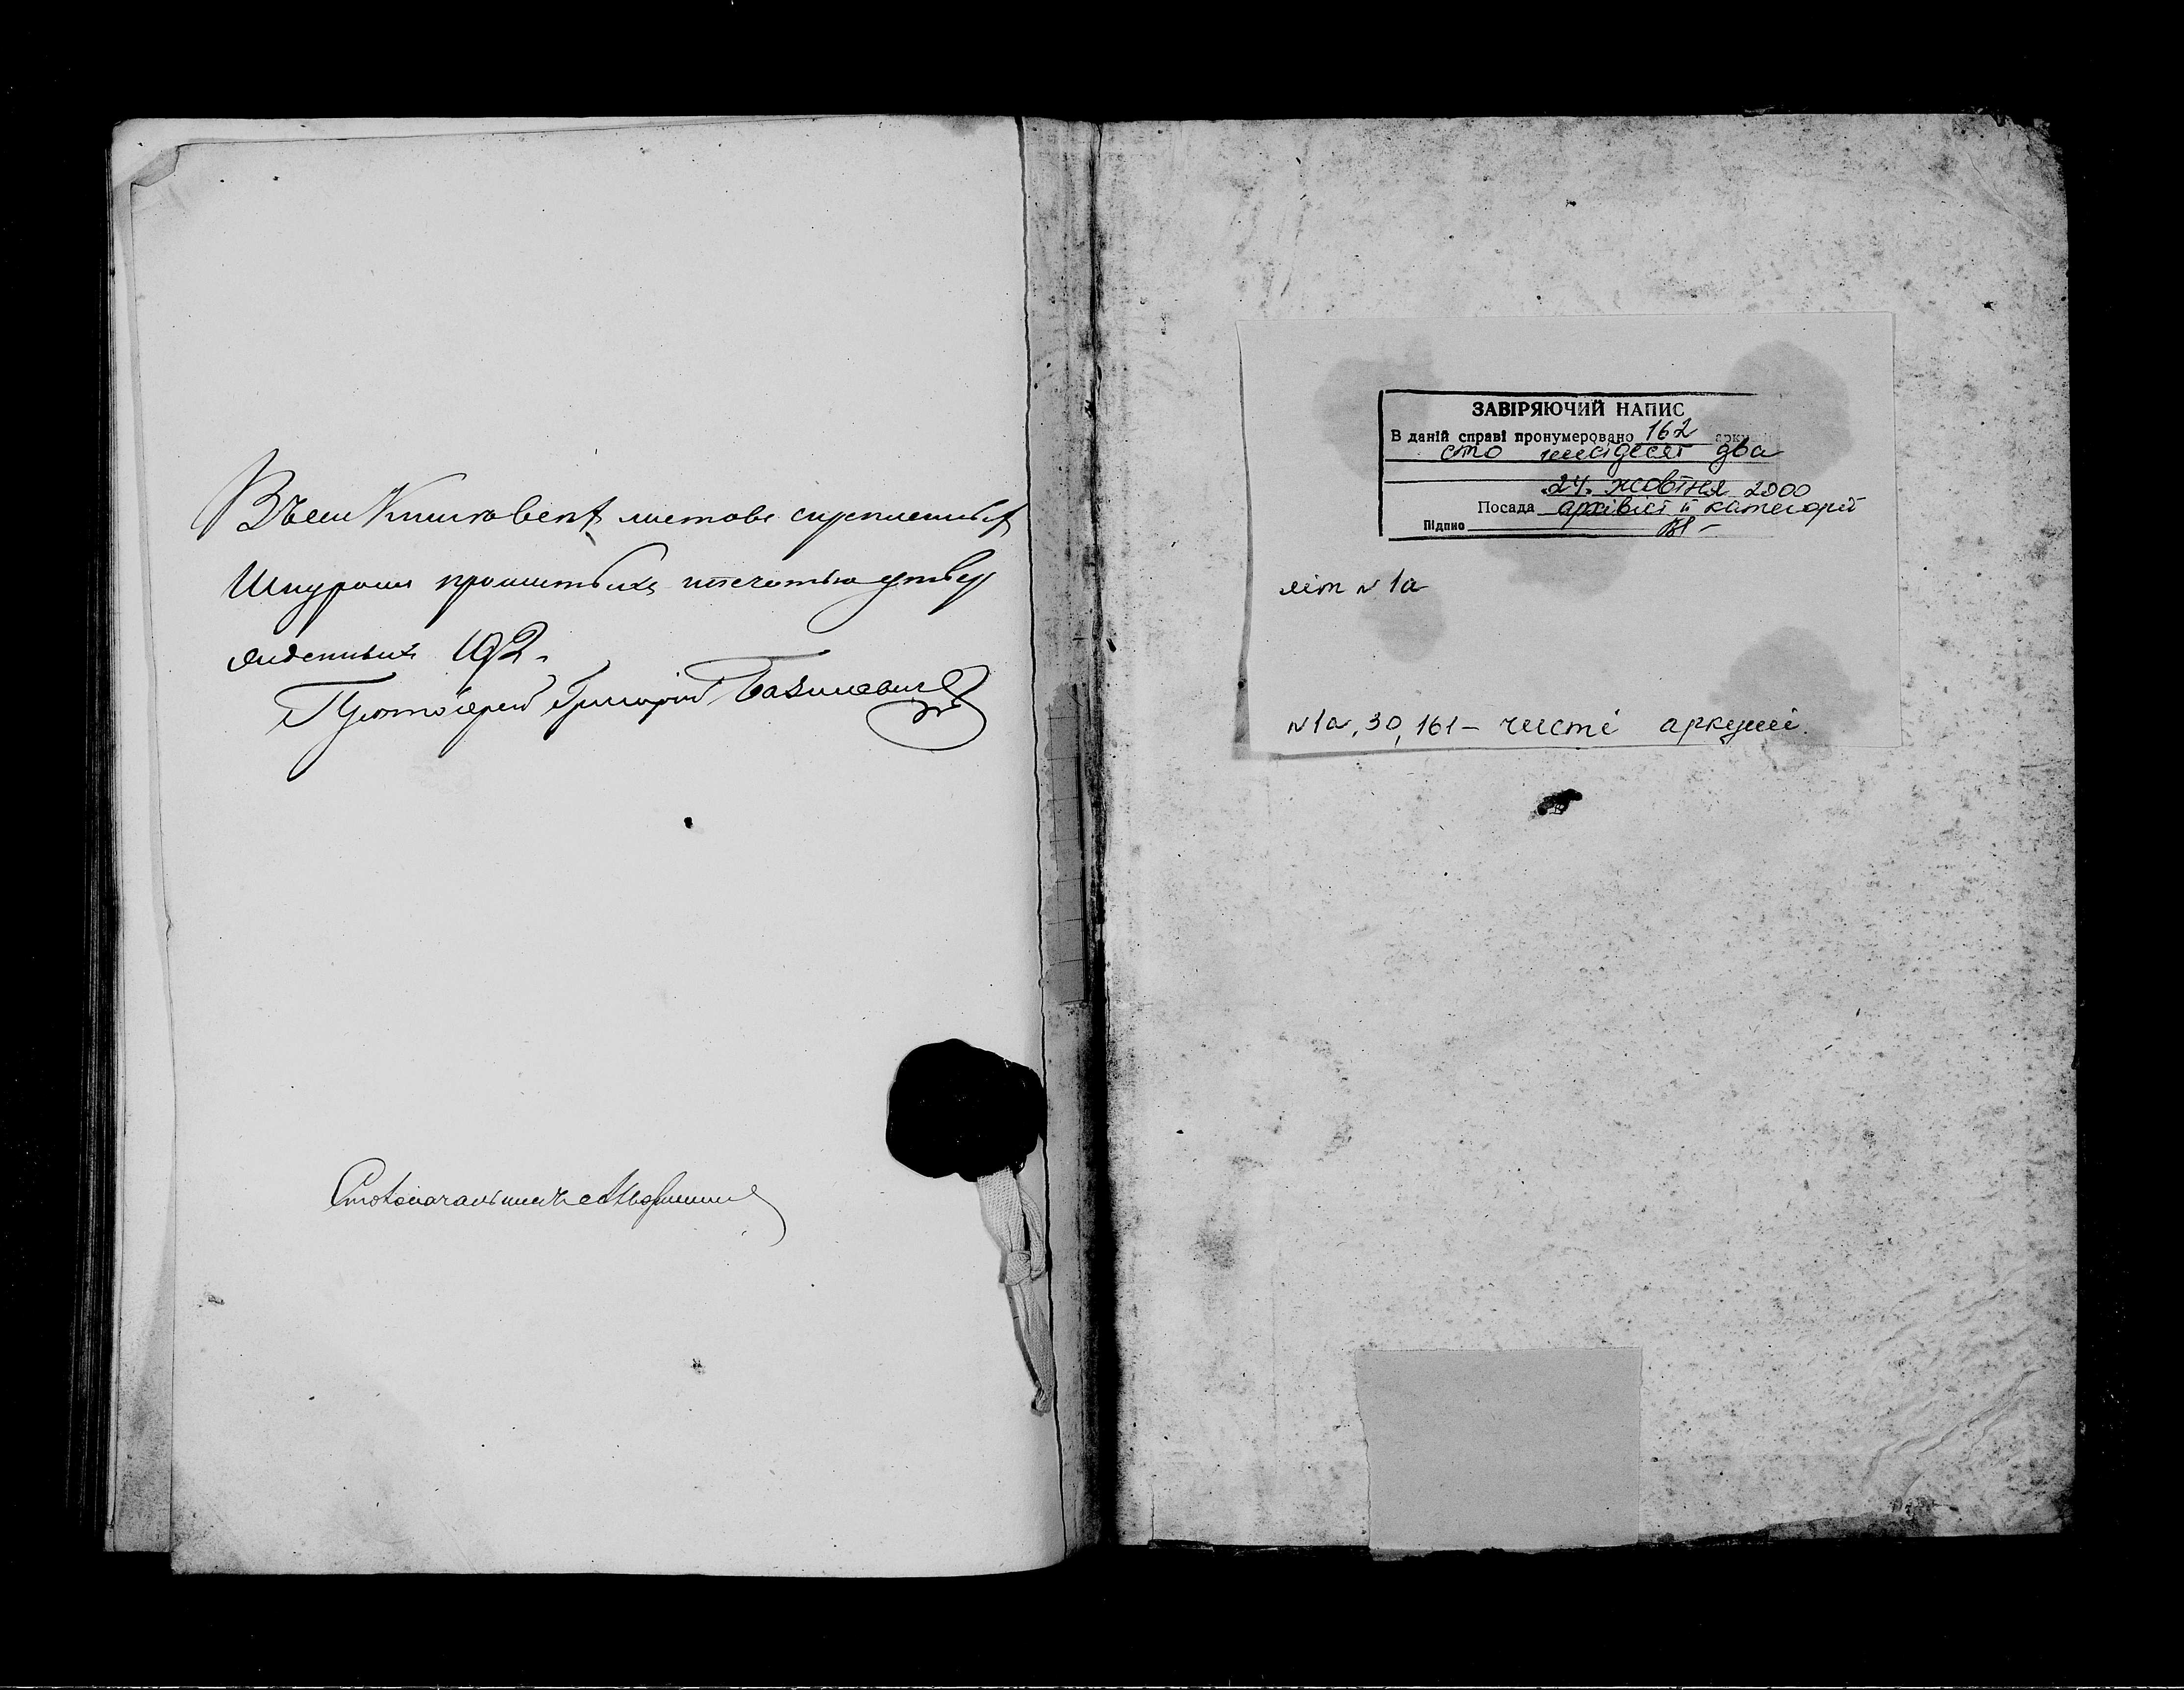 Въ сей книгѣ всехъ листовъ скрепленныхъ
Шнуромъ прошитыхъ и печатью утвер
жденныхъ 192.
Протоіерей Григорій Базилевичъ
Столоначальникъ
ЗАВІРЯЮЧИЙ НАПИС
В даній справі пронумеровано 162 аркуші
сто шістдесят два
24 жовтня 2000
Посада архівіст ІІ категорії
Підпис
літ N 1а
N 1а, 30, 161 – чисті аркуші.